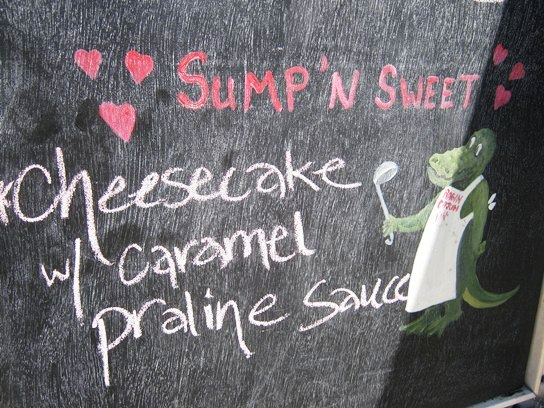 SUMP'N SWEET
*Cheesecake
w/ caramel
praline sauce